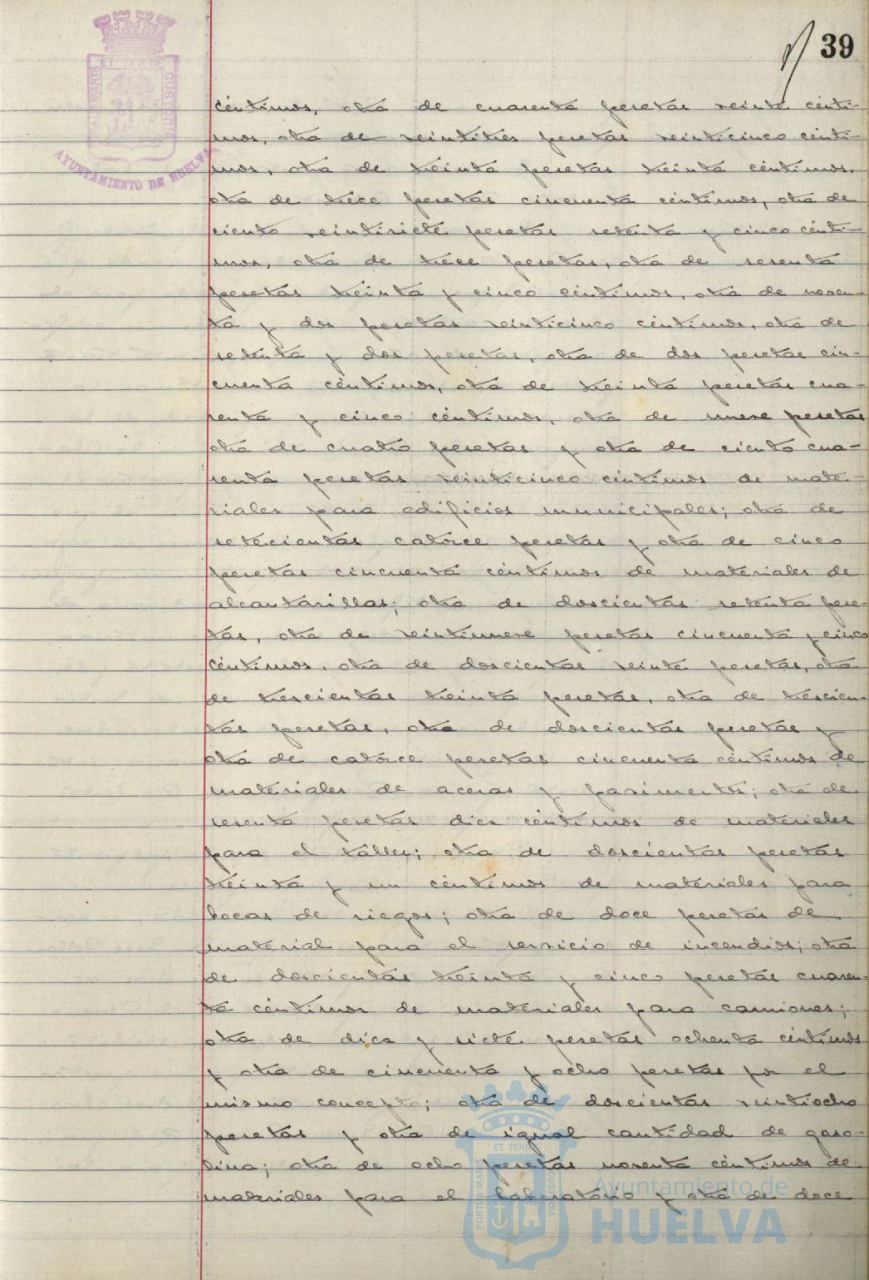 39
PORTUS MARIS ET TERRÆ CUSTODIA
AYUNTAMIENTO DE HUELVA
céntimos, otra de cuarenta pesetas veinte cénti-
mos, otra de veintitrés pesetas veinticinco cénti-
mos, otra de treinta pesetas treinta céntimos,
otra de trece pesetas cincuenta céntimos, otra de
ciento veintisiete pesetas setenta y cinco cénti-
mos, otra de trece pesetas, otra de sesenta
pesetas treinta y cinco céntimos, otra de noven-
ta y dos pesetas veinticinco céntimos, otra de
setenta y dos pesetas, otra de dos pesetas cin-
cuenta céntimos, otra de treinta pesetas cua-
renta y cinco céntimos, otra de nueve pesetas
otra de cuatro pesetas y otra de ciento cua-
renta pesetas veinticinco céntimos de mate-
riales para edificios municipales; otra de
setecientas catorce pesetas y otra de cinco
pesetas cincuenta céntimos de materiales de
alcantarillas; otra de doscientas setenta pese-
tas, otra de veintinueve pesetas cincuenta y cinco
céntimos, otra de doscientas veinte pesetas, otra
de trescientas treinta pesetas, otra de trescien-
tas pesetas, otra de doscientas pesetas y
otra de catorce pesetas cincuenta céntimos de
materiales de aceras y pavimentos; otra de
sesenta pesetas diez céntimos de materiales
para el taller; otra de doscientas pesetas
treinta y un céntimos de materiales para
bocas de riegos; otra de doce pesetas de
material para el servicio de incendios; otra
de doscientas treinta y cinco pesetas cuaren-
ta céntimos de materiales para camiones;
otra de diez y siete pesetas ochenta céntimos
y otra de cincuenta y ocho pesetas por el
mismo concepto; otra de doscientas veintiocho
pesetas y otra de igual cantidad de gaso-
lina; otra de ocho pesetas noventa céntimos de
materiales para el laboratorio y otra de doce
Ayuntamiento de
HUELVA